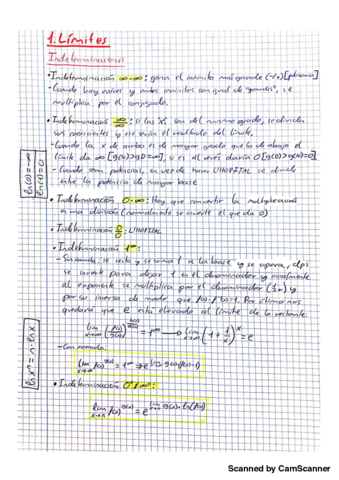 1. Límites
Indeterminaciones
• Indeterminación ∞-∞: gana el infinito más grande (-/+) [polinomio]
- Cuando hay raíces y ambos infinitos son igual de "grandes", se
multiplica por el conjugado.
• Indeterminación ∞/∞: si las "x" son del mismo grado, se dividen
sus coeficientes y ese sería el resultado del límite.
- Cuando la x de arriba es de mayor grado que la de abajo el
límite da ∞ [g(x)>g(x)=∞], si es al revés daría 0 [g(x)>g(x)=0]
- Cuando sean potencias, en vez de hacer L'HOPITAL se divide
entre la potencia de mayor base
ln(0)=-∞
ln(1)=0
• Indeterminación 0·∞: Hay que convertir la multiplicación
en una división (normalmente se invierte el que da 0)
• Indeterminación 0/0: L'HOPITAL
• Indeterminación 1^∞:
- Sin formula: se resta y se suma 1 a la base y se opera, dps
se invierte para dejar 1 en el denominador y finalmente
al exponente se multiplica por el denominador (1/n) y
por su inversa de modo que f(x)·f⁻¹(x)=1. Por último nos
quedará que e está elevado al límite de lo restante.
ln xⁿ = n·ln x
lim x→∞ = 1^∞ → lim x→∞ (1 + 1/x)^x = e
- Con formula:
lim x→∞ f(x)^g(x) = 1^∞ → e^lim g(x)·(f(x)-1)
• Indeterminación
lim f(x)^g(x) = e^lim g(x)·ln(f(x))
Scanned by CamScanner